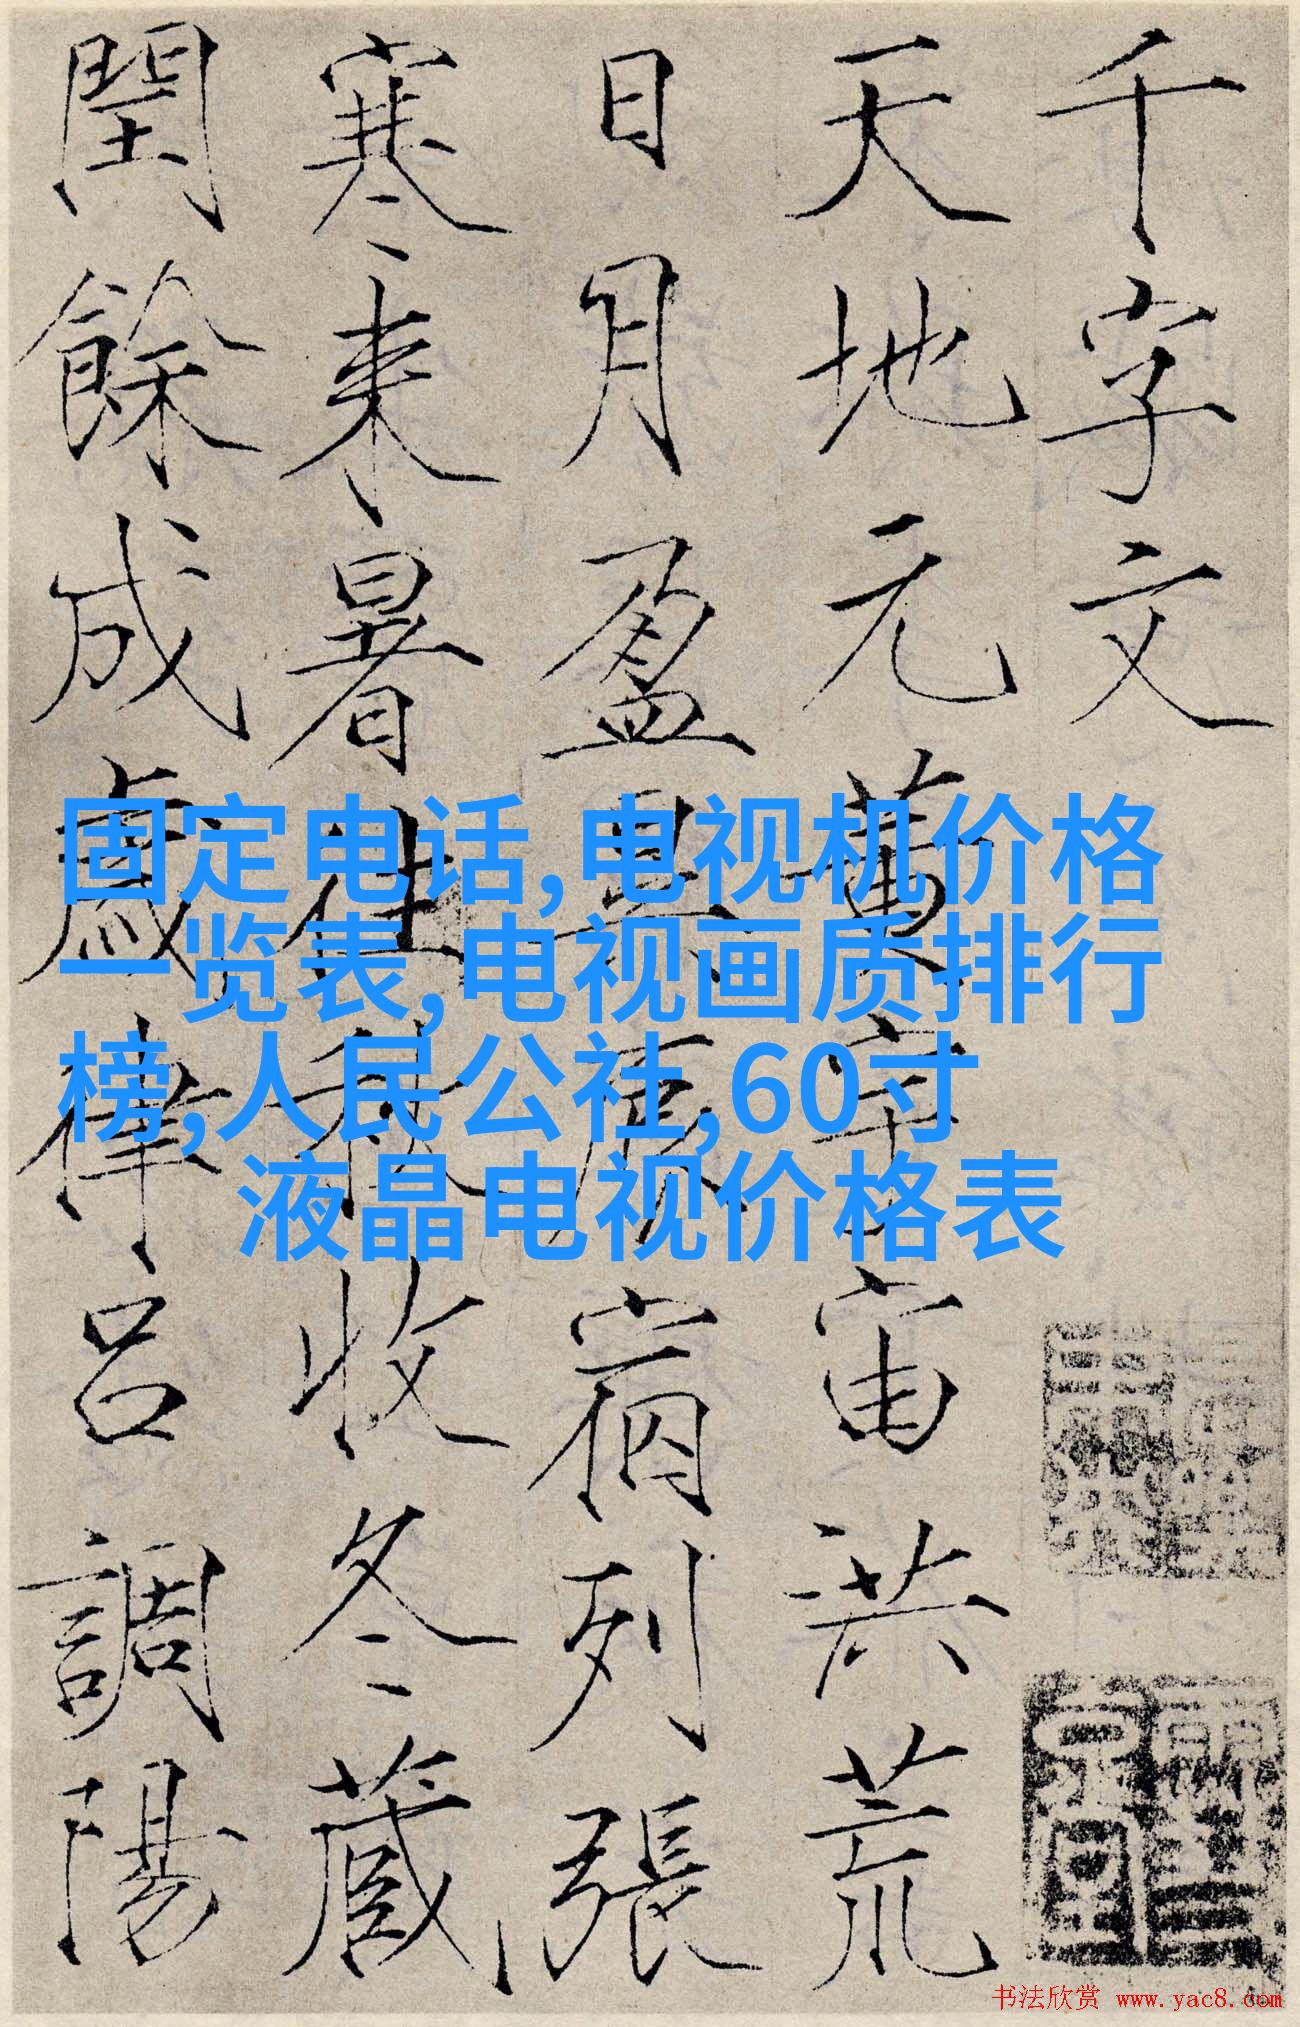 千字文
天地元黄宇宙洪荒
日月盈昃辰宿列張
寒来暑往秋收冬蔵
閏餘成歲律吕調陽
固定电话,电视机价格
一览表,电视画质排行
榜,人民公社,60寸
液晶电视价格表
书法欣赏 www.yac8.com